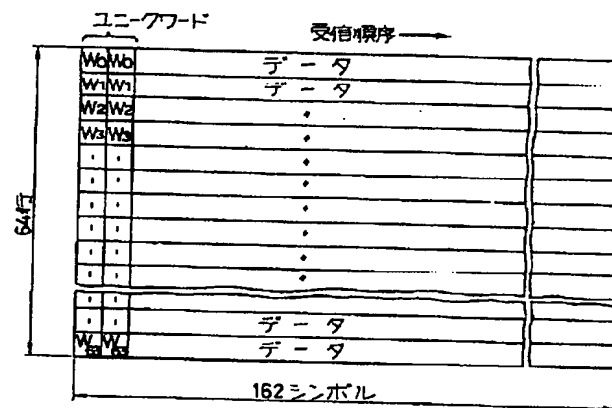 ユニークワード
受信順序
W0 W0 データ
W1 W1 データ
W2 W2
W3 W3
64行
データ
W63 W63 データ
162シンボル